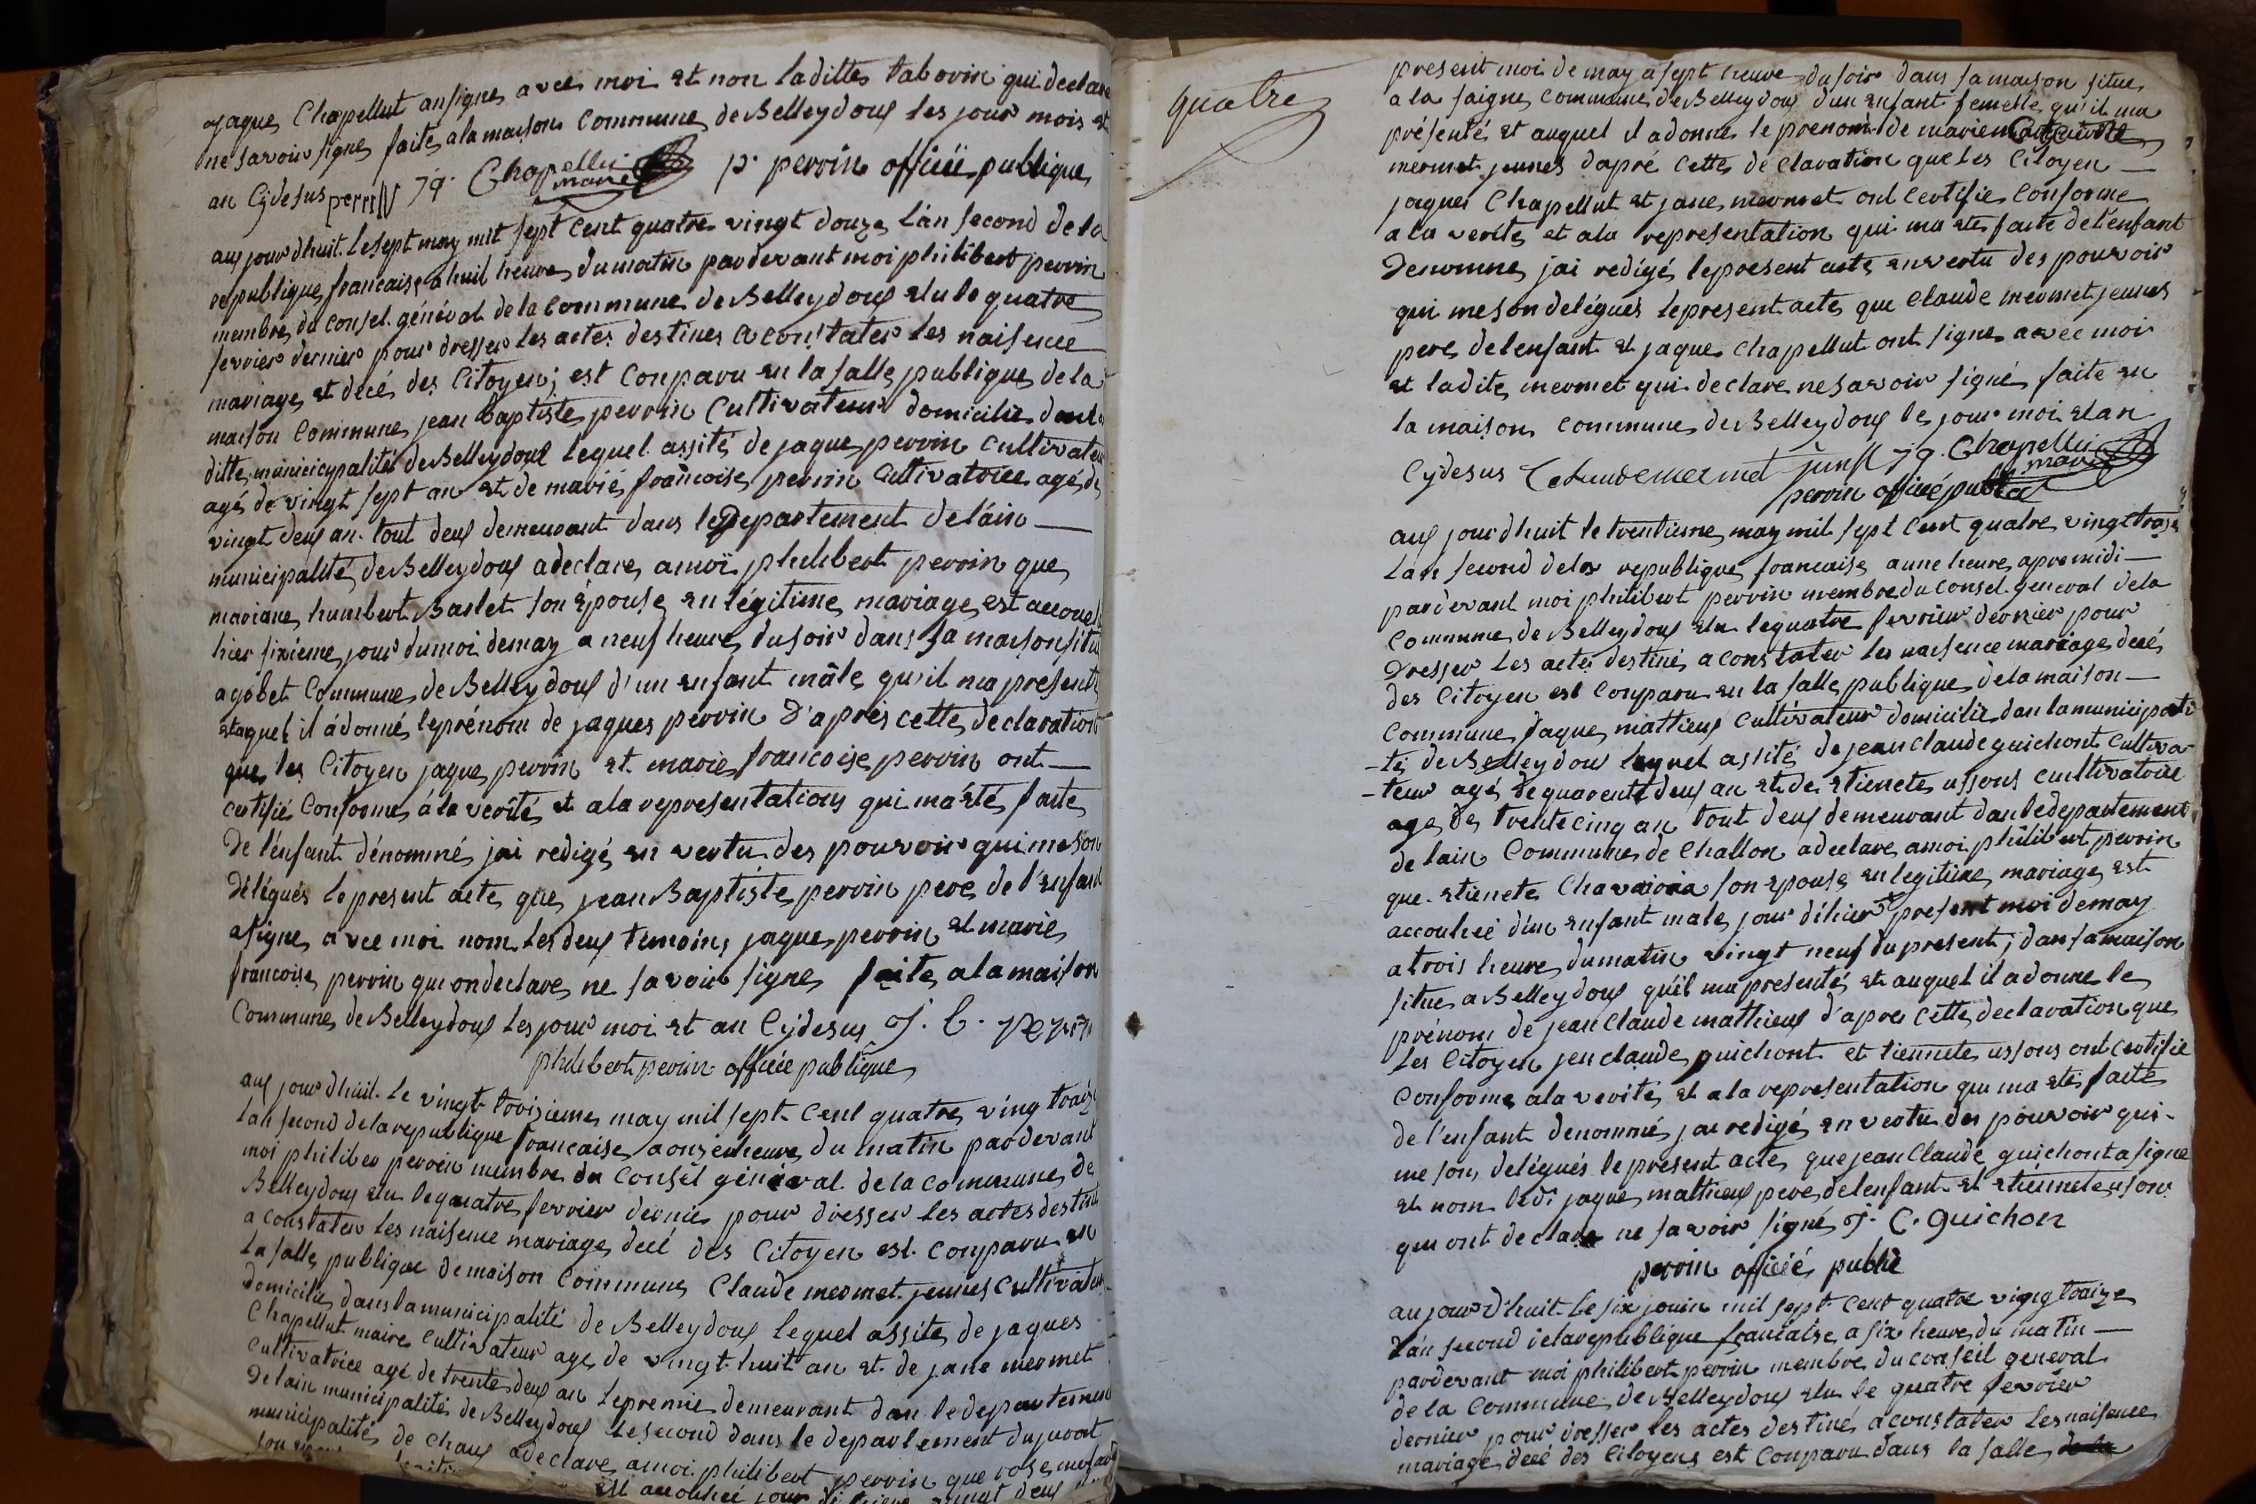 jaque Chapellut ansigne avec moi et non laditte tabovin qui declare
ne savoir signe faite a la maison commune de Belleydoux les jour mois et
an Cydesus perrin jq. Chapellu maire p. perrin officié publique
aux jour d'huit le sept may mil sept cent quatre vingt douze l'an second de la
republique francaise a huit heure du matin pardevant moi philibert perrin
membre du consel général de la commune de Belleydoux elu le quatre
fevrier dernier pour dresser les actes destines a constater les naisence
mariage et décé des Citoyen; est conparu en la salle publique de la
maison commune jean baptiste perrin cultivateur domicilié dan la
ditte municicypalité de Belleydoux lequel assité de jaque perrin cultivateu
agé de vingt sept an et de marié francoise perrin cultivatrice agé de
vingt deux an tout deux demeurant dans le Departement de l'ain —
municipalité de Belleydoux a declare a moï philibert perrin que
mariane humbert Barlet son épouse en légitime mariage est accouc
hier sixieme jour du moi de may a neuf heure du soir dans sa maison situ
a gobet commune de Belleydoux d'un enfant mâle qu'il ma presenté
et aquel il a donné le prénom de jaques perrin D'aprés cette declaration
que les Citoyen jaque perrin et marie francoise perrin ont —
certifié conforme á la verité et a la representations qui ma été faite
De l'enfant dénommé jai redigé en vertu des pouvoir qui me son
Délégués le present acte que jean Baptiste perrin pere de l'enfant
a signe avec moi nom les deux temoins jaque perrin et marie
francoise perrin qui on declare ne savoir signe faite a la maison
Commune de Belleydoux les jour moi et an Cydesus j. b. perrin
philibert perrin officié publique
aux jour d'huit le vingt troisieme may mil sept cent quatre ving traize
lan second de la republique francaise a onze heure du matin pardevant
moi philiber perrin membre du Consél général de la commune de
Belleydoux elu le quatre fevrier dernié pour dresser les actes destiné
a constater les naisence mariage decé des Citoyen est conparu en
la salle publique de maison commune Claude mermet jeunes cultivateu
domicilié dans la municipalité de Belleydoux lequel assité de jaques
Chapellut maire cultivateur age de vingt huit an et de jane mermet
cultivatrice agé de trente deux an le premie demeurant dan le departement
De lain municipalité de Belleydoux le second dans le departement du jurat
municipalité de chaux a declare a moi philibert perrin que rose
son
est accouchée jour vingt deux
quatre
present moi de may a sept heure du soir dans sa maison situe
a la faigne commune de Belleydoux d'un enfant femelle qu'il ma
présenté et auquel il a donne le prenom de marie
mermet jeunes d'apré cette declaration que les Citoyen —
jaques Chapellut et jane mermet ont certifie conforme
a la verite et a la representation qui ma ete faite de l'enfant
Denomme jai redigé le present acte en vertu des pouvoir
qui me son delégués le present acte que claude mermet jeunes
pere de lenfant et jaque chapellut ont signe avec moi
et ladite mermet qui declare ne savoir signé faite en
la maison commune de Belleydoux le jour moi et an
Cydesus Claudemermet jeune jq. Chapellu maire
perrin officié public
aux jour d'huit le trentieme may mil sept cent quatre vingt traize
Lan second de la republique francaise a une heure apre midi —
pardevant moi philibert perrin membre du consel general de la
Commune de Belleydoux elu le quatre fevrier dernier pour
Dresser les acter destiné a constater les naisence mariage decé
des Citoyen est conparu en la salle publique de la maison —
Commune jaque mathieux cultivateur domicilié dan la municipali
-té de Belleydoux lequel assité de jean claude guichont cultiva
-teur agé de quarente deux an et de etienete ussons cultivatrice
age de trente cinq an tout deux demeurant dan le departement
de lain Commune de Challon a declare a moi philibert perrin
que etienete Chavairia son epouse en legitime mariage est
accouhée d'un enfant male jour d'hier present moi de may
a trois heure du matin vingt neuf du present; dan sa maison
situe a Belleydoux qu'il ma presenté et auquel il a donne le
prénom de jean Claude mathieux d'apre cette declaration que
Les Citoyen jen claude guichont et tiennete ussons ont certifié
Conforme a la verité et a la representation qui ma ete faite
de l'enfant denommé jai redigé en vertu des pouvoir qui -
me son delégués le present acte que jean Claude guichont a signe
et nom ledi jaque mathieux pere de lenfant et etiennete uson
qui ont declare ne savoir signé j. C. guichon
perrin officié public
au jour d'huit le six jouin mil sept cent quatre ving traize
l'an second de la republique francaise a six heure du matin —
pardevant moi philibert perrin membre du conseil general
de la Commune de Belleydoux elu le quatre fevrier
dernier pour dresser les actes destiné a constater les naisence
mariage decé des Citoyens est conparu dans la salle de la